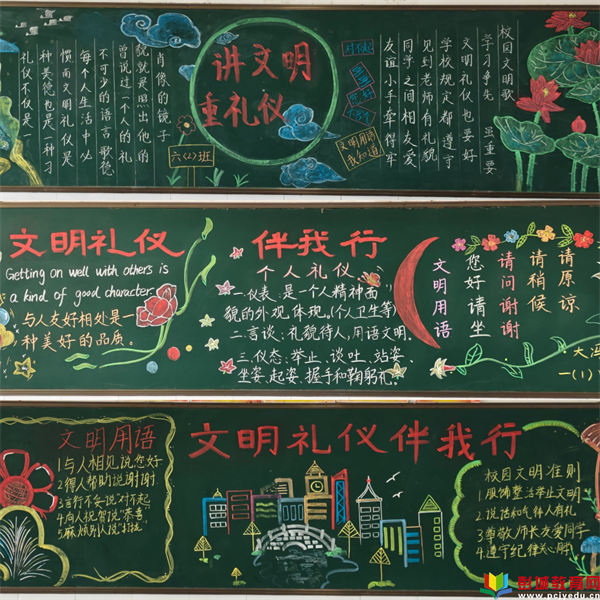 讲文明
重礼仪
校园文明歌
学习争先 虽重要
文明礼仪也要好
学校规定都遵守
见到老师有礼貌
同学之间相友爱
友谊小手牵得牢
对不起
文明用语
我知道
六(2)班
肖像的镜子
貌就是照出他的
曾说过一个人的礼
不可少的语言 歌德
每个人生活中必
惯而文明礼仪是
种美德也是一种习
礼仪不仅是一
文明礼仪 伴我行
Getting on well with others is
a kind of good character
与人友好相处是一
种美好的品质。
个人礼仪
一.仪表:是一个人精神面
貌的外观体现。(个人卫生等)
二.言谈:礼貌待人,用语文明。
三.仪态:举止、谈吐、站姿、
坐姿、起姿、握手和鞠躬礼。
文明用语
您好请坐
请问谢谢
请稍候
请原谅
一(1)
文明礼仪伴我行
文明用语
1与人相见说您好
2得人帮助说谢谢
3言行不妥说"对不起"
4向人祝贺说"恭喜"
5麻烦别人说"打扰"
校园文明准则
1服饰整洁举止文明
2说话和气待人有礼
3尊敬师长友爱同学
彭城教育网
www.pcjyedu.cn